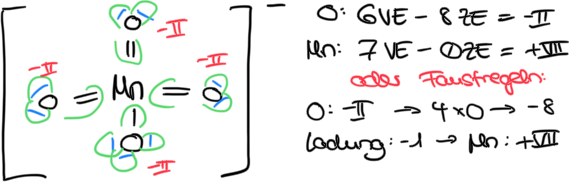 O -II
-II -II
O = Mn = O
O -II
-
O: 6VE - 8ZE = -II
Mn: 7VE - 0ZE = +VII
oder Faustregeln:
O: -II → 4×O → -8
Ladung: -1 → Mn: +VII